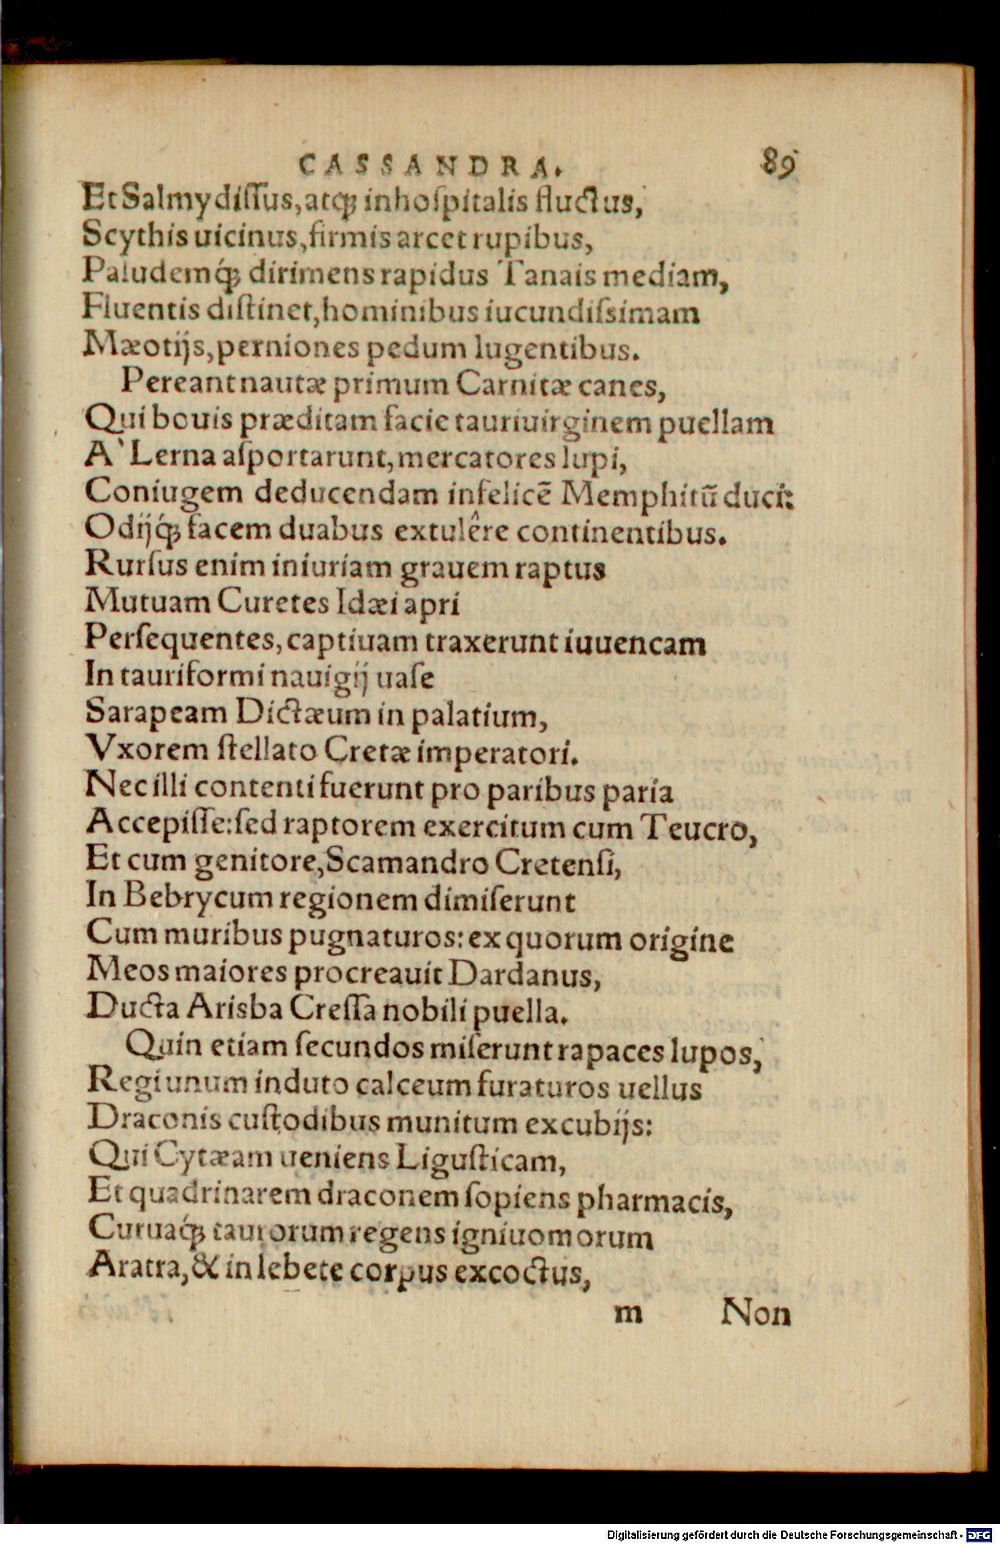 CASSANDRA. 89
Et Salmydiſſus, atq́; inhoſpitalis fluctus,
Scythis uicinus, firmis arcet rupibus,
Paludemq́; dirimens rapidus Tanais mediam,
Fluentis diſtinet, hominibus iucundiſsimam
Mæotijs, perniones pedum lugentibus.
Pereant nautæ primum Carnitæ canes,
Qui bouis præditam facie tauriuirginem puellam
A` Lerna aſportarunt, mercatores lupi,
Coniugem deducendam infelicē Memphitū duci:
Odijq́; facem duabus extulêre continentibus.
Rurſus enim iniuriam grauem raptus
Mutuam Curetes Idæi apri
Perſequentes, captiuam traxerunt iuuencam
In tauriformi nauigij uaſe
Sarapeam Dictæum in palatium,
Vxorem ſtellato Cretæ imperatori.
Nec illi contenti fuerunt pro paribus paria
Accepiſſe: ſed raptorem exercitum cum Teucro,
Et cum genitore, Scamandro Cretenſi,
In Bebrycum regionem dimiſerunt
Cum muribus pugnaturos: ex quorum origine
Meos maiores procreauit Dardanus,
Ducta Arisba Creſſa nobili puella.
Quin etiam ſecundos miſerunt rapaces lupos,
Regi unum induto calceum furaturos uellus
Draconis cuſtodibus munitum excubijs:
Qui Cytæam ueniens Liguſticam,
Et quadrinarem draconem ſopiens pharmacis,
Curuaq́; taurorum regens igniuomorum
Aratra, & in lebete corpus excoctus,
m Non
Digitalisierung gefördert durch die Deutsche Forschungsgemeinschaft - DFG